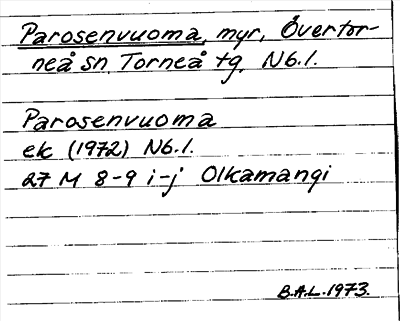 Parosenvuoma, myr, Övertor-
neå sn. Torneå tg. Nb.l.
Parosenvuoma
ek (1972) Nb.l.
27 M 8-9 i-j Olkamangi
B.A.L. 1973.